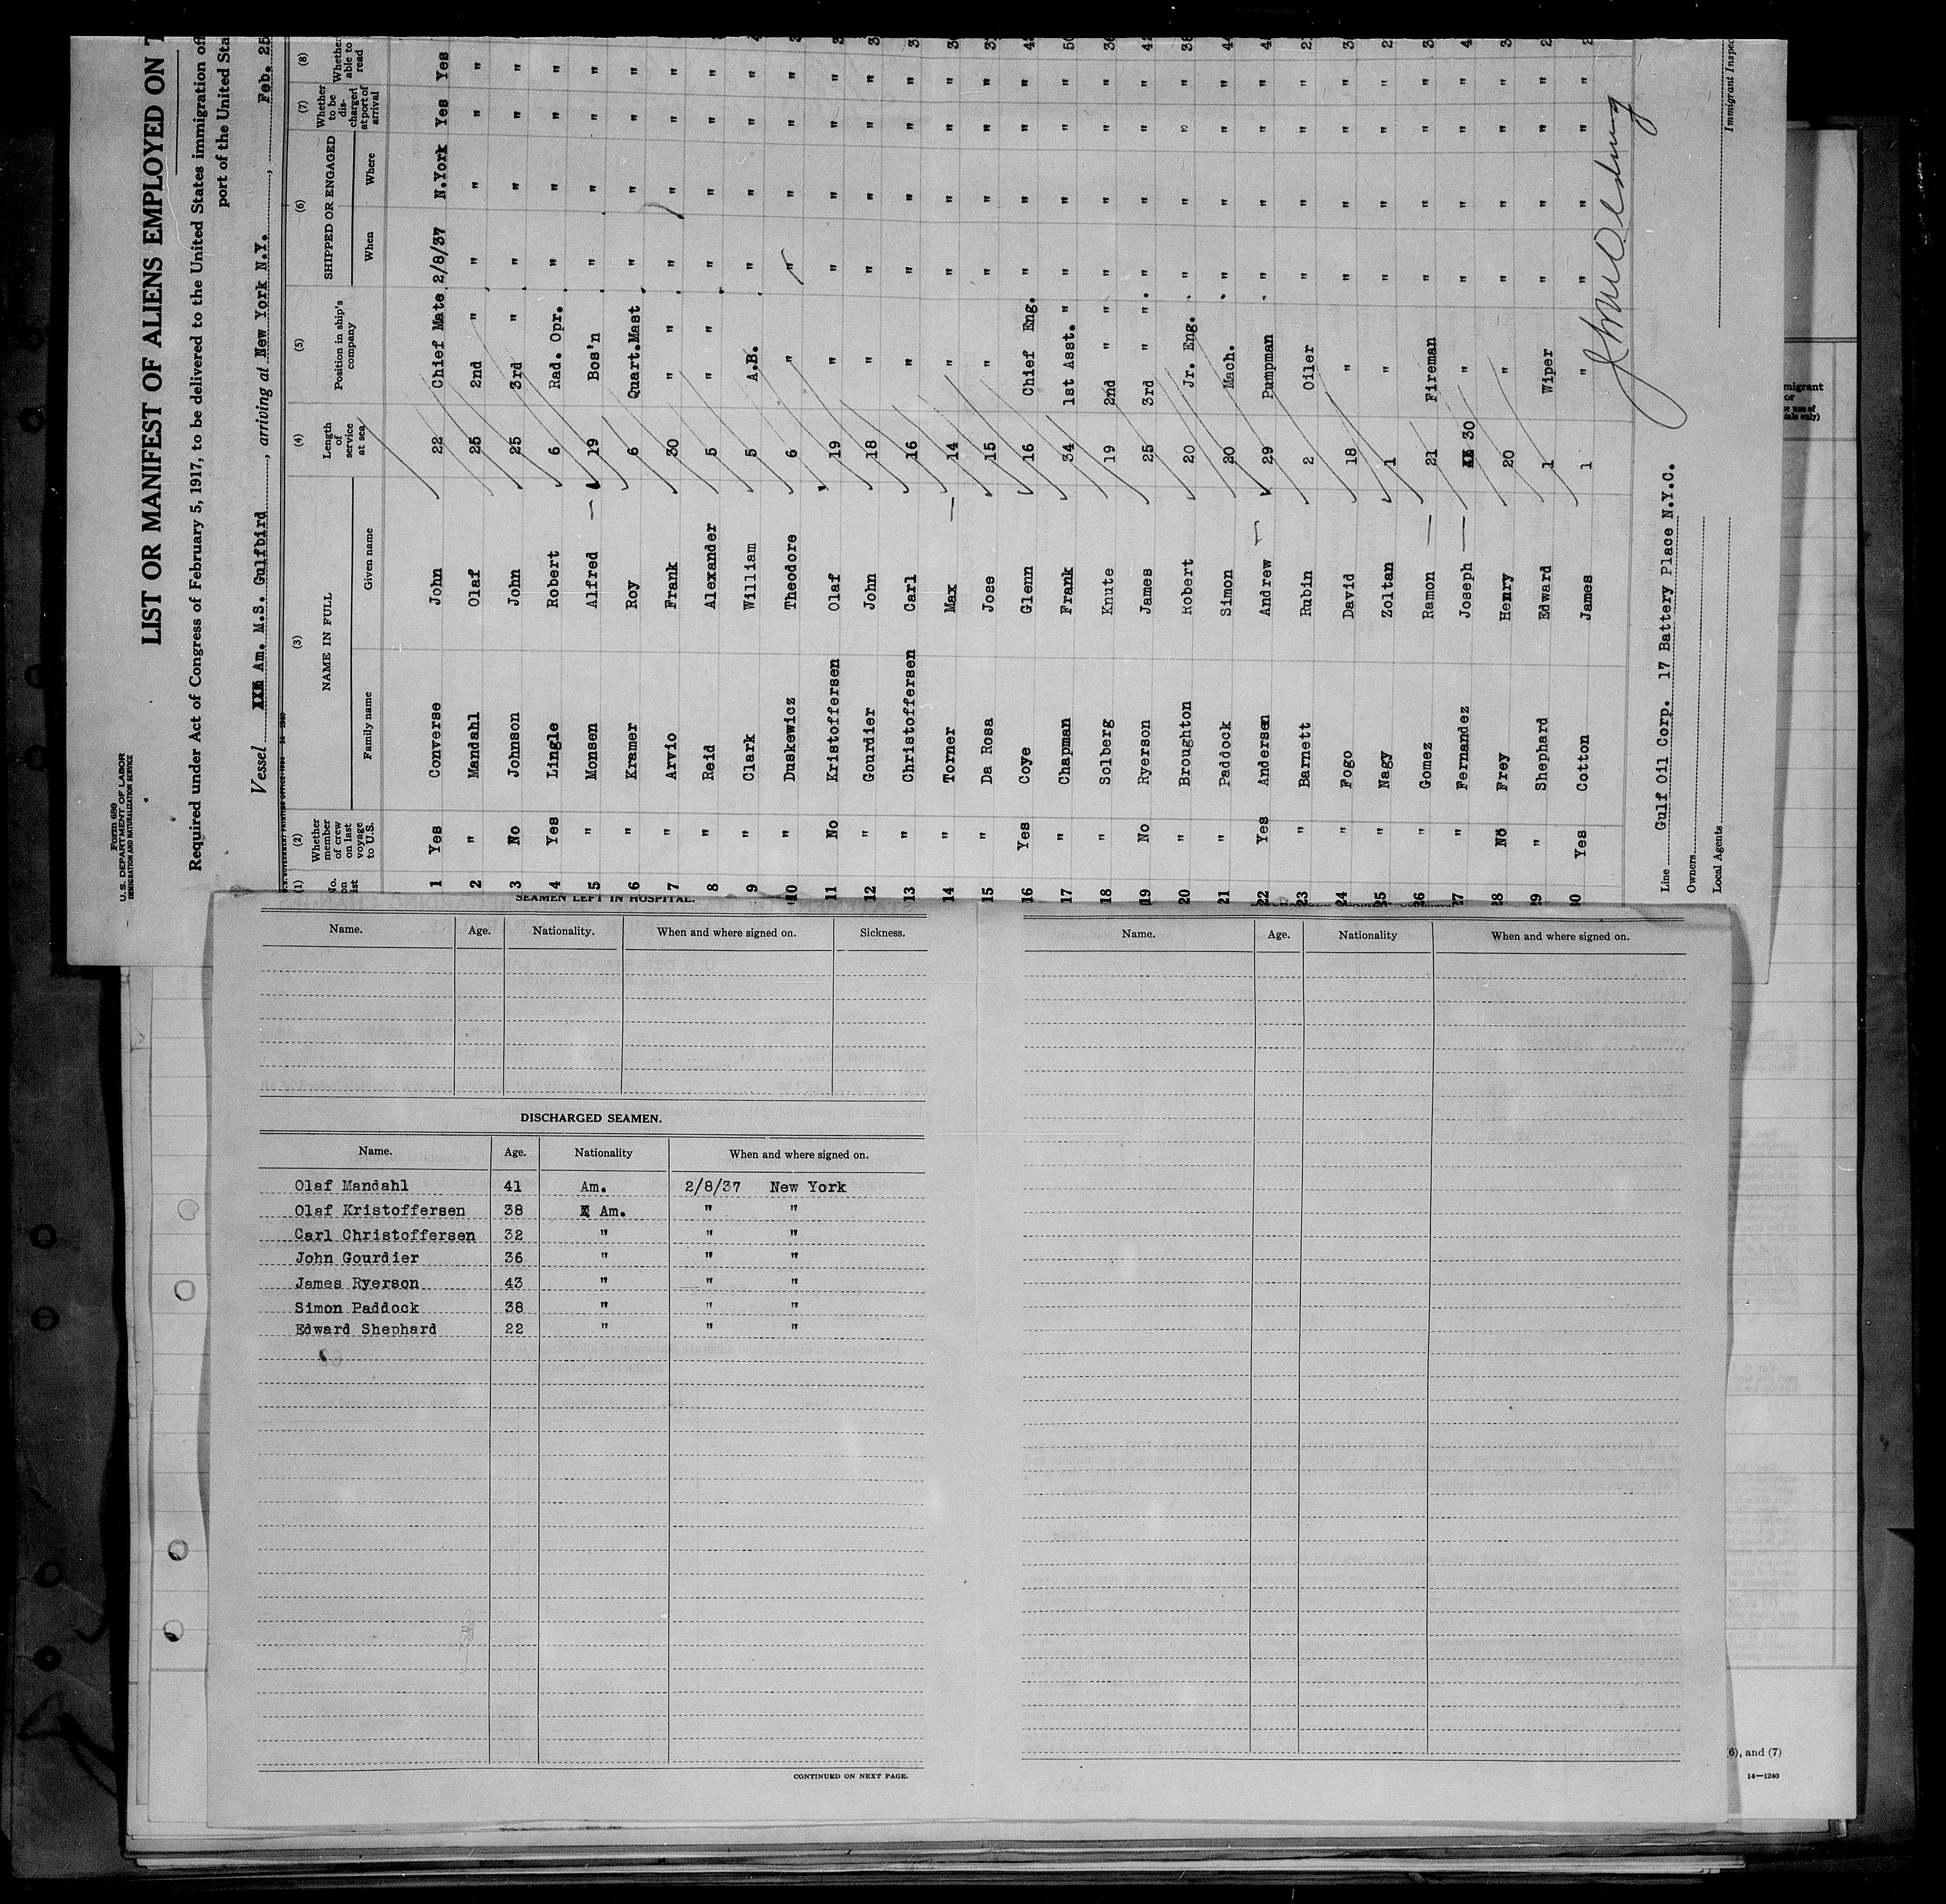 Form 689
U.S. DEPARTMENT OF LABOR
IMMIGRATION AND NATURALIZATION SERVICE
LIST OR MANIFEST OF ALIENS EMPLOYED ON T
Required under Act of Congress of February 5, 1917, to be delivered to the United States immigration of
port of the United Sta
Vessel Am. M.S. Gulfbird, arriving at New York N.Y., Feb. 25
(1) (2) (3) (4) (5) (6) (7) (8)
No. on list Whether member of crew on last voyage to U.S. NAME IN FULL Family name Given name Length of service at sea Position in ship's company SHIPPED OR ENGAGED When Where Whether to be discharged at port of arrival Whether able to read
1 Yes Converse John 22 Chief Mate 2/8/37 N.York Yes Yes
2 " Mandahl Olaf 25 2nd " " " " "
3 No Johnson John 25 3rd " " " " "
4 Yes Lingle Robert 6 Rad. Opr. " " " "
5 " Monsen Alfred 19 Bos'n " " " "
6 " Kramer Roy 6 Quart.Mast " " " "
7 " Arvio Frank 30 " " " " " "
8 " Reid Alexander 5 " " " " " "
9 " Clark William 5 A.B. " " " "
10 " Duskewicz Theodore 6 " " " " "
11 No Kristoffersen Olaf 19 " " " " "
12 " Gourdier John 18 " " " " "
13 " Christoffersen Carl 16 " " " " "
14 " Torner Max 14 " " " " "
15 " Da Rosa Jose 15 " " " " "
16 Yes Coye Glenn 16 Chief Eng. " " " "
17 " Chapman Frank 34 1st Asst. " " " " "
18 " Solberg Knute 19 2nd " " " " " "
19 No Ryerson James 25 3rd " " " " " "
20 " Broughton Robert 20 Jr. Eng. " " " "
21 " Paddock Simon 20 Mach. " " " "
22 Yes Andersen Andrew 29 Pumpman " " " "
23 " Barnett Rubin 2 Oiler " " " "
24 " Fogo David 18 " " " " "
25 " Nagy Zoltan 1 " " " " "
26 " Gomez Ramon 21 Fireman " " " "
27 " Fernandez Joseph 30 " " " " "
28 No Frey Henry 20 " " " " "
29 " Shephard Edward 1 Wiper " " " "
30 Yes Cotton James 1 " " " " "
Line Gulf Oil Corp. 17 Battery Place N.Y.C.
Owners
Local Agents
Immigrant Inspec
SEAMEN LEFT IN HOSPITAL.
Name. Age. Nationality. When and where signed on. Sickness.
DISCHARGED SEAMEN.
Name. Age. Nationality When and where signed on.
Olaf Mandahl 41 Am. 2/8/37 New York
Olaf Kristoffersen 38 Am. " "
Carl Christoffersen 32 " " "
John Gourdier 36 " " "
James Ryerson 43 " " "
Simon Paddock 38 " " "
Edward Shephard 22 " " "
CONTINUED ON NEXT PAGE.
Name. Age. Nationality When and where signed on.
(6), and (7)
14—1240